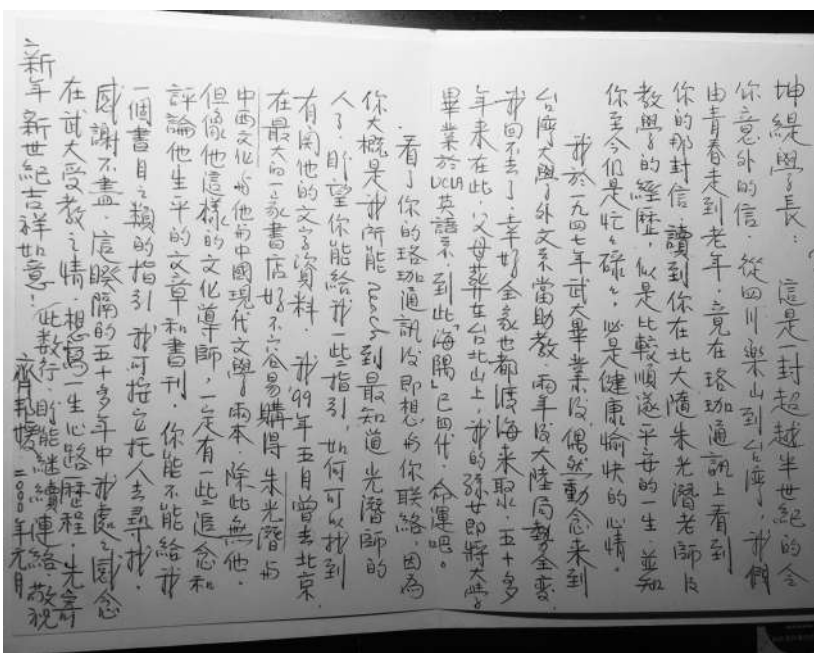 坤緹學長： 這是一封超越半世紀的令
你意外的信。從四川樂山到台灣，我們
由青春走到老年，竟在珞珈通訊上看到
你的那封信。讀到你在北大隨朱光潛老師及
教學的經歷，似是比較順遂平安的一生，並知
你至今仍是忙忙碌碌，必是健康愉快的心情。
我於一九四七年武大畢業後，偶然動念來到
台灣大學外文系當助教，兩年後大陸局勢全變，
我回不去了，幸好全家也都渡海來聚，五十多
年來在此，父母葬在台北山上，我的孫女即將大學
畢業於UCLA英語系，到此「海隅」已四代，命運吧。
看了你的珞珈通訊後即想與你聯絡，因為
你大概是我所能access到最知道光潛師的
人了，盼望你能給我一些指引，如何可以找到
有關他的文字資料，我'99年五月曾去北京，
在最大的一家書店好不容易購得朱光潛與
中西文化與他的中國現代文學兩本，除此無他，
但像他這樣的文化導師，一定有一些追念和
評論他生平的文章和書刊，你能不能給我
一個書目之類的指引，我可按立托人去尋找，
感謝不盡，這暌隔的五十多年中我處處感念
在武大受教之情，想寫一生心路歷程，先寄
此數行，盼能繼續連絡，敬祝
新年新世紀吉祥如意！
齊邦媛 二〇〇〇年元月